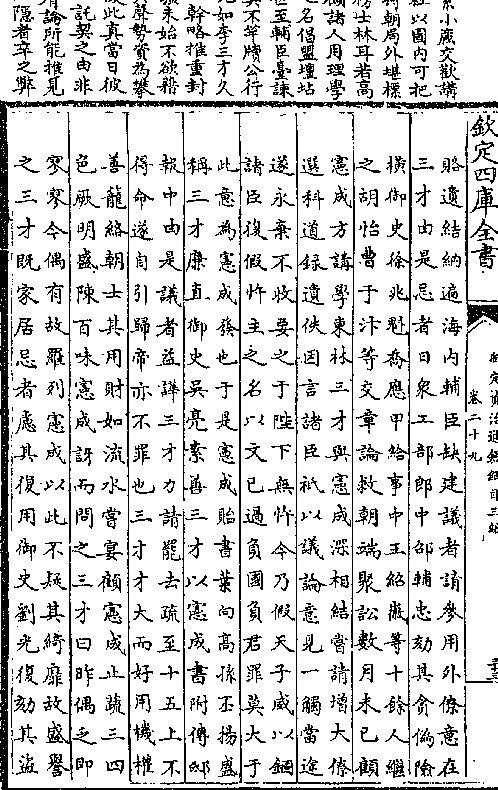 欽定四庫全書
御定資治通鑑綱目三編
卷二十九
賂遺結納遍海內輔臣缺建議者請參用外僚意在
三才由是忌者日衆工部郎中邵輔忠劾其貪偽險
橫御史徐兆魁喬應甲給事中王紹徽等十餘人繼
之胡忻曹于汴等交章論救朝端聚訟數月未已顧
憲成方講學東林三才與憲成深相結嘗請增大僚
選科道錄遺佚因言諸臣祇以議論意見一觸當途
遂永棄不收要之于陛下無忤今乃假天子威以錮
諸臣復假忤主之名以文已過負國負君罪莫大于
此意為憲成發也于是憲成貽書葉向高孫丕揚盛
稱三才廉直御史吳亮素善三才以憲成書附傳邸
報中由是議者益譁三才力請罷去疏至十五上不
得命遂自引歸帝亦不罪也三才才大而好用機權
善籠絡朝士其用財如流水嘗宴顧憲成止蔬三四
色厥明盛陳百味憲成訝而問之三才曰昨偶乏即
寥寥今偶有故羅列憲成以此不疑其綺靡故盛譽
之三才既家居忌者慮其復用御史劉光復劾其盜
黨小廢文歡講
社以國內可把
將朝局外堪標
務士林耳若高
顧諸人用理學
之名倡盟壇坫
甚至輔臣臺諫
莫不竿牘公行
尤如李三才久
幹略推重封
彊未始不欲藉
聲勢資為攀
彼此真當日彼
託契之由非
有論所能推見
隱者卒之弊